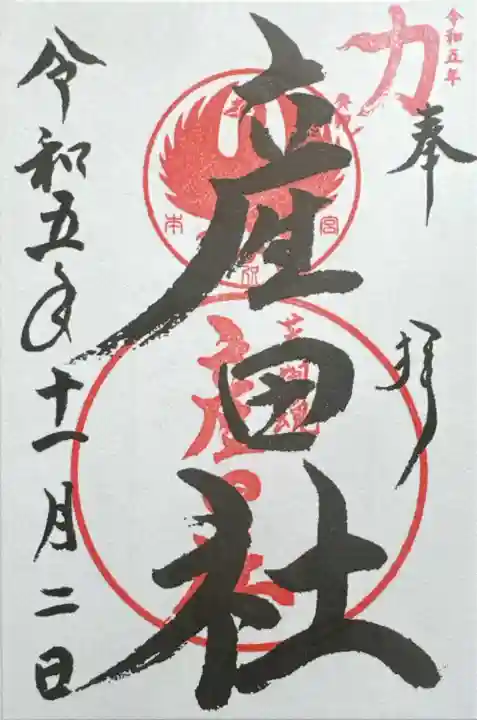 令和五年
力
奉
拝
産田社
本
宮
令和五年十一月二日